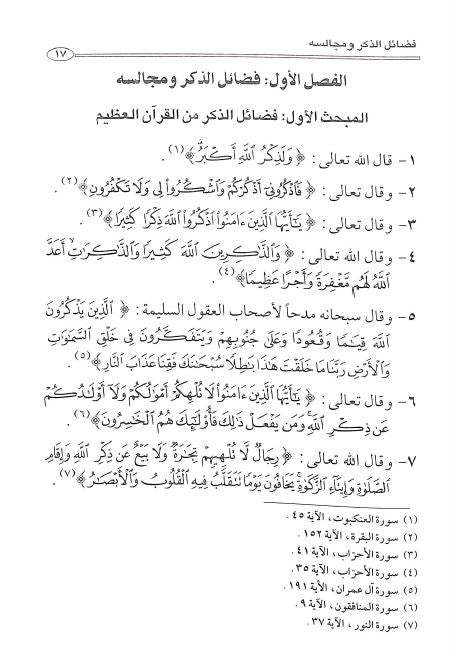 فضائل الذكر ومجالسه
١٧
الفصل الأول: فضائل الذكر ومجالسه
المبحث الأول: فضائل الذكر من القرآن العظيم
١- قال الله تعالى: ﴿ وَلَذِكْرُ اللَّهِ أَكْبَرُ ﴾(١).
٢- وقال تعالى: ﴿ فَاذْكُرُونِي أَذْكُرْكُمْ وَاشْكُرُوا لِي وَلَا تَكْفُرُونِ ﴾(٢).
٣- وقال تعالى: ﴿ يَٰٓأَيُّهَا الَّذِينَ ءَامَنُوا اذْكُرُوا اللَّهَ ذِكْرًا كَثِيرًا ﴾(٣).
٤- وقال الله تعالى: ﴿ وَالذَّٰكِرِينَ اللَّهَ كَثِيرًا وَالذَّٰكِرَٰتِ أَعَدَّ
اللَّهُ لَهُم مَّغْفِرَةً وَأَجْرًا عَظِيمًا ﴾(٤).
٥- وقال سبحانه مدحاً لأصحاب العقول السليمة: ﴿ الَّذِينَ يَذْكُرُونَ
اللَّهَ قِيَٰمًا وَقُعُودًا وَعَلَىٰ جُنُوبِهِمْ وَيَتَفَكَّرُونَ فِي خَلْقِ السَّمَٰوَٰتِ
وَالْأَرْضِ رَبَّنَا مَا خَلَقْتَ هَٰذَا بَٰطِلًا سُبْحَٰنَكَ فَقِنَا عَذَابَ النَّارِ ﴾(٥).
٦- وقال تعالى: ﴿ يَٰٓأَيُّهَا الَّذِينَ ءَامَنُوا لَا تُلْهِكُمْ أَمْوَٰلُكُمْ وَلَا أَوْلَٰدُكُمْ
عَن ذِكْرِ اللَّهِ وَمَن يَفْعَلْ ذَٰلِكَ فَأُولَٰئِكَ هُمُ الْخَٰسِرُونَ ﴾(٦).
٧- وقال الله تعالى: ﴿ رِجَالٌ لَّا تُلْهِيهِمْ تِجَٰرَةٌ وَلَا بَيْعٌ عَن ذِكْرِ اللَّهِ وَإِقَامِ
الصَّلَوٰةِ وَإِيتَاءِ الزَّكَوٰةِ يَخَافُونَ يَوْمًا تَتَقَلَّبُ فِيهِ الْقُلُوبُ وَالْأَبْصَٰرُ ﴾(٧).
(١) سورة العنكبوت، الآية ٤٥.
(٢) سورة البقرة، الآية ١٥٢.
(٣) سورة الأحزاب، الآية ٤١.
(٤) سورة الأحزاب، الآية ٣٥.
(٥) سورة آل عمران، الآية ١٩١.
(٦) سورة المنافقون، الآية ٩.
(٧) سورة النور، الآية ٣٧.